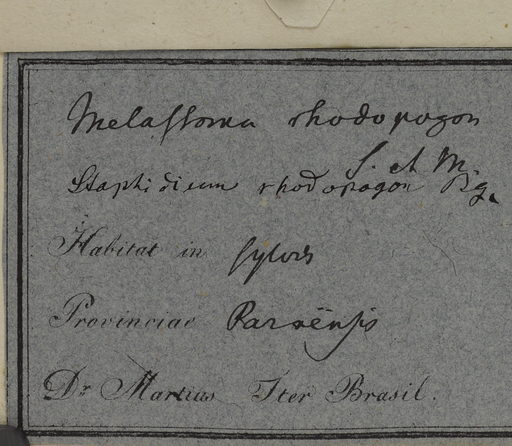 Melastoma rhodopogon
S. et M.
Staphidium rhodopogon Ng.
Habitat in sylvis
Provinciae Paraënsis
Dr. Martius Iter Brasil.